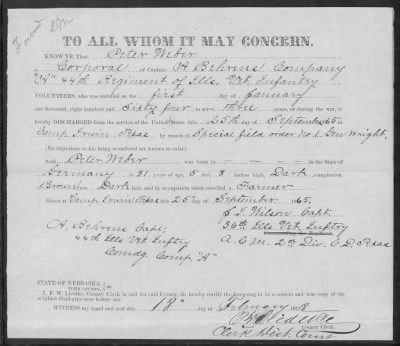 Found
TO ALL WHOM IT MAY CONCERN.
KNOW YE That Peter Weber
a Corporal of Captain A Behrens Company
"A" 44th Regiment of Ills. Vet Infantry
VOLUNTEERS, who was enrolled on the first day of January
one thousand, eight hundred and Sixty four to serve three years, or during the war, is
hereby DISCHARGED from the service this 25th day of September, 1865 at
Camp Irwin Texas by reason of Special field order No 1. Gen Wright.
(No objections to his being reenlisted are known to exist.)
Said Peter Weber was born in in the State of
Germany 31 years of age 5 feet 8 inches high, Dark complexion,
Brown Dark hair, and by occupation when enrolled a Farmer
Given at Camp Irwin Texas 25 day of September 1865.
A. Behrens Capt; C. T. Wilson Capt.
44th Ills Vet Inftry 36th Ills Vet Inftry
Comdg Comp. "A" A. C. M. 2nd Div. Texas
STATE OF NEBRASKA,
YORK COUNTY,
County Clerk in and for said County, do hereby certify the foregoing to be a correct and true copy of the
original discharge now before me.
WITNESS my hand and seal this 18th day of February 18
County Clerk.
Clerk Dist. Court